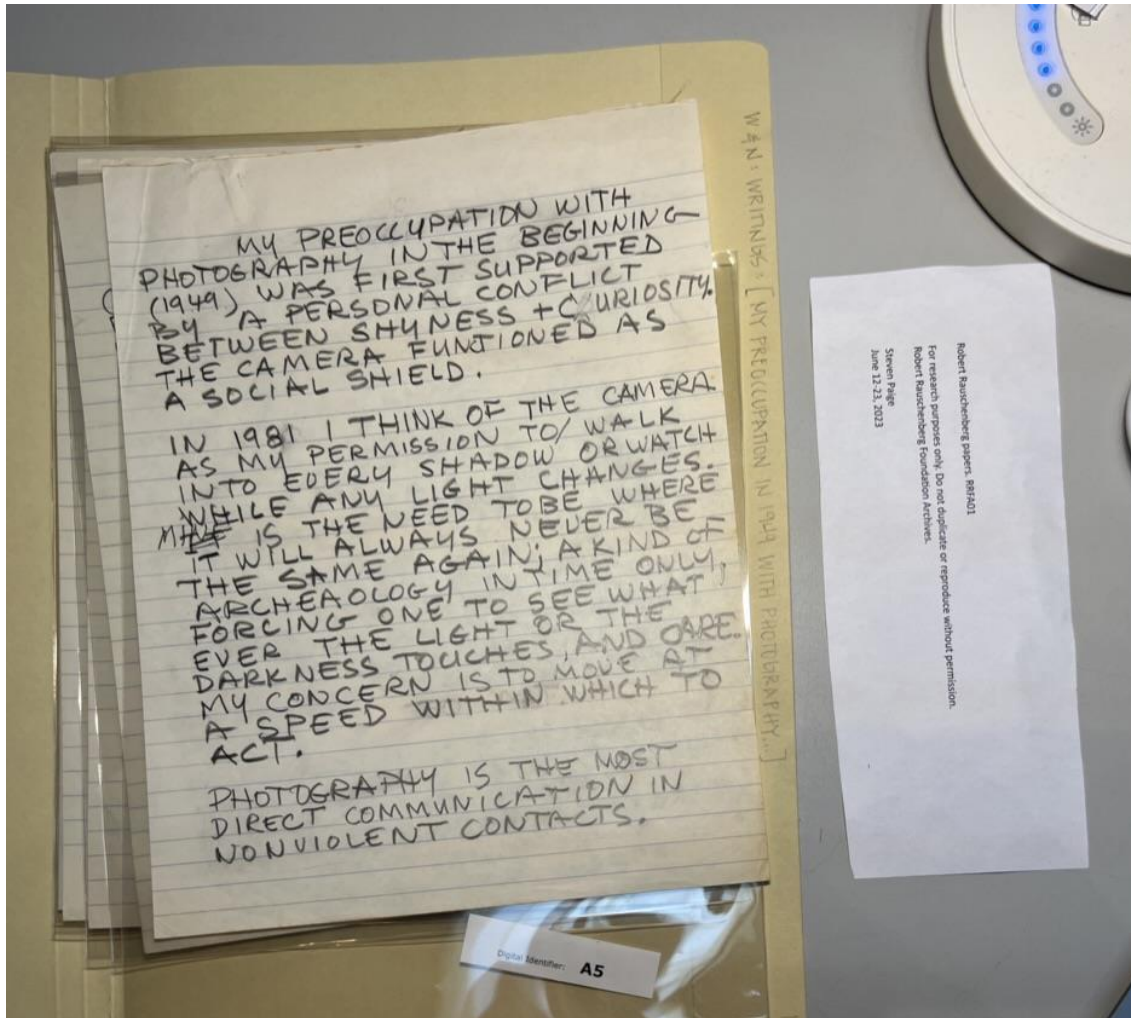 MY PREOCCUPATION WITH
PHOTOGRAPHY IN THE BEGINNING
(1949) WAS FIRST SUPPORTED
BY A PERSONAL CONFLICT
BETWEEN SHYNESS + CURIOSITY.
THE CAMERA FUNTIONED AS
A SOCIAL SHIELD.
IN 1981 I THINK OF THE CAMERA
AS MY PERMISSION TO/WALK
INTO EVERY SHADOW OR WATCH
WHILE ANY LIGHT CHANGES.
MINE IS THE NEED TO BE WHERE
IT WILL ALWAYS NEVER BE
THE SAME AGAIN; A KIND OF
ARCHEAOLOGY IN TIME ONLY,
FORCING ONE TO SEE WHAT
EVER THE LIGHT OR THE
DARKNESS TOUCHES, AND CARE.
MY CONCERN IS TO MOVE AT
A SPEED WITHIN WHICH TO
ACT.
PHOTOGRAPHY IS THE MOST
DIRECT COMMUNICATION IN
NONVIOLENT CONTACTS.
W&N: WRITINGS: [MY PREOCCUPATION IN 1949 WITH PHOTOGRAPHY...]
Robert Rauschenberg papers. RRFA01
For research purposes only. Do not duplicate or reproduce without permission.
Robert Rauschenberg Foundation Archives.
Steven Paige
June 12-23, 2023
Digital Identifier: A5